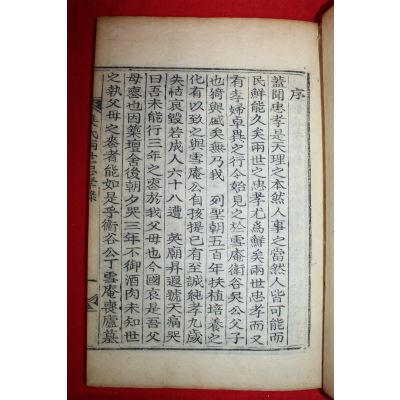 序
蓋聞忠孝是天理之本然人事之當然人皆可能而
民鮮能久矣兩世之忠孝尤爲鮮矣兩世忠孝而又
有孝婦卓異之行今始見之於雪庵衛谷吳公父子
也猗與盛矣無乃我　列聖朝五百年扶植培養之
化有以致之與雪庵公自孩提已有至誠純孝九歲
失怙哀毀若成人六十八遭　英廟昇遐號天痛哭
曰吾未能行三年之喪於我父母也今國哀是吾父
母喪也因築壇舍後朝夕哭三年不御酒肉未知世
之執父母之喪者能如是乎衛谷公丁雪庵喪廬墓
吳氏兩世忠孝錄
一